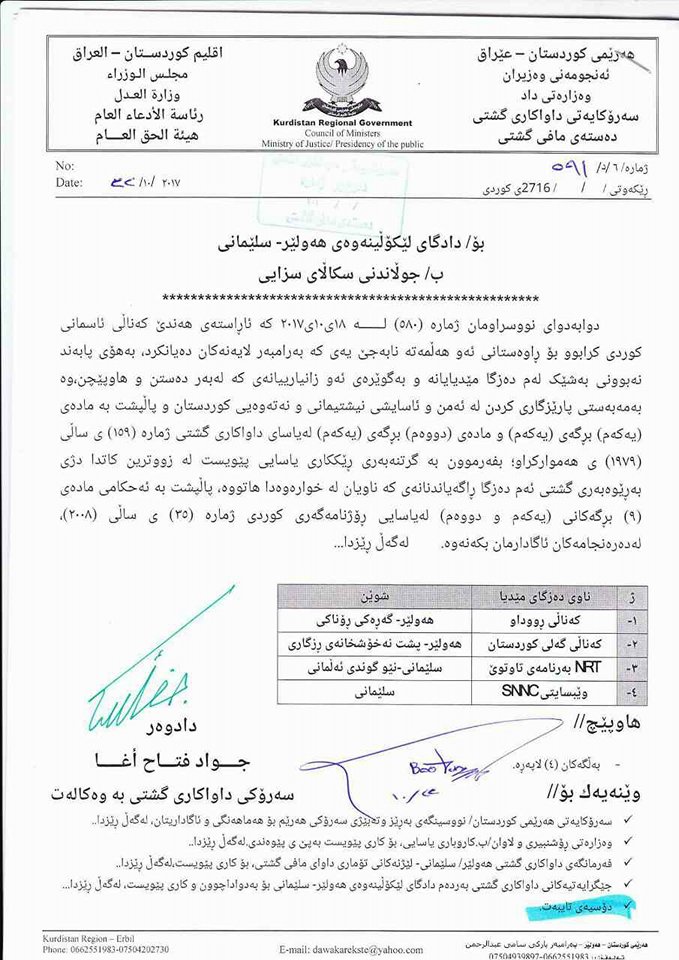 هەرێمی كوردستان – عێراق
ئەنجومەنی وەزیران
وەزارەتی داد
سەرۆكایەتی داواكاری گشتی
دەستەی مافی گشتی
Kurdistan Regional Government
Council of Ministers
Ministry of Justice/ Presidency of the public
اقليم كوردستـان – العراق
مجلس الـوزراء
وزارة العـدل
رئاسة الأدعاء العام
هيئة الحق العـــام
ژمارە/ ٦/د/ ٥٩١
ڕێكەوتی/ / / 2716ی كوردی
No:
Date: /١٠/ ٢٠١٧
بۆ/ دادگای لێكۆڵینەوەی هەولێر- سلێمانی
ب/ جوڵاندنی سكاڵای سزایی
*****************************************************
دوابەدوای نووسراومان ژمارە (٥٨٠) لـــــە ١٨ی١٠ی٢٠١٧ كە ئاڕاستەی هەندێ كەناڵی ئاسمانی
كوردی كرابوو بۆ ڕاوەستانی ئەو هەڵمەتە نابەجێ یەی كە بەرامبەر لایەنەكان دەیانكرد، بەهۆی پابەند
نەبوونی بەشێك لەم دەزگا مێدیایانە و بەگوێرەی ئەو زانیارییانەی كە لەبەر دەستن و هاوپێچن،وە
بەمەبەستی پارێزگاری كردن لە ئەمن و ئاسایشی نیشتیمانی و نەتەوەیی كوردستان و پاڵپشت بە مادەی
(یەكەم) بڕگەی (یەكەم) و مادەی (دووەم) بڕگەی (یەكەم) لەیاسای داواكاری گشتی ژمارە (١٥٩) ی ساڵی
(١٩٧٩) ی هەمواركراو؛ بفەرموون بە گرتنەبەری ڕێككاری یاسایی پێویست لە زووترین كاتدا دژی
بەڕێوەبەری گشتی ئەم دەزگا ڕاگەیاندنانەی كە ناویان لە خوارەوەدا هاتووە، پاڵپشت بە ئەحكامی مادەی
(٩) بڕگەكانی (یەكەم و دووەم) لەیاسایی ڕۆژنامەگەری كوردی ژمارە (٣٥) ی ساڵی (٢٠٠٨)،
لەدەرەنجامەكان ئاگادارمان بكەنەوە. لەگەڵ ڕێزدا...
ژ ناوی دەزگای مێدیا شوێن
١- كەناڵی ڕووداو هەولێر- گەڕەكی ڕۆناكی
٢- كەناڵی گەلی كوردستان هەولێر- پشت نەخۆشخانەی ڕزگاری
٣- NRT بەرنامەی تاوتوێ سلێمانی-نێو گوندی ئەڵمانی
٤- وێبسایتی SNNC سلێمانی
هاوپێچ//
- بەڵگەكان (٤) لاپەڕە.
دادوەر
جـواد فتـاح أغـا
سەرۆكی داواكاری گشتی بە وەكالەت
وێنەیەك بۆ//
✓ سەرۆكایەتی هەرێمی كوردستان/ نووسینگەی بەڕێز وتەبێژی سەرۆكی هەرێم بۆ هەماهەنگی و ئاگاداریتان، لەگەڵ ڕێزدا..
✓ وەزارەتی ڕۆشنبیری و لاوان/ب.كاروباری یاسایی، بۆ كاری پێویست بەپێ ی پێوەندی.لەگەڵ ڕێزدا..
✓ فەرمانگەی داواكاری گشتی هەولێر/ سلێمانی- لێژنەكانی تۆماری داوای مافی گشتی، بۆ كاری پێویست.لەگەڵ ڕێزدا..
✓ جێگرایەتیەكانی داواكاری گشتی بەردەم دادگای لێكۆڵینەوەی هەولێر- سلێمانی بۆ بەدواداچوون و كاری پێویست، لەگەڵ ڕێزدا...
✓ دۆسیەی تایبەت.
Kurdistan Region – Erbil
Phone: 0662551983-07504202730
E-mail: dawakarekste@yahoo.com
هەرێمی كوردستان – هەولێر – بەرامبەر پاركی سامی عبدالرحمن
07504939897-0662551983